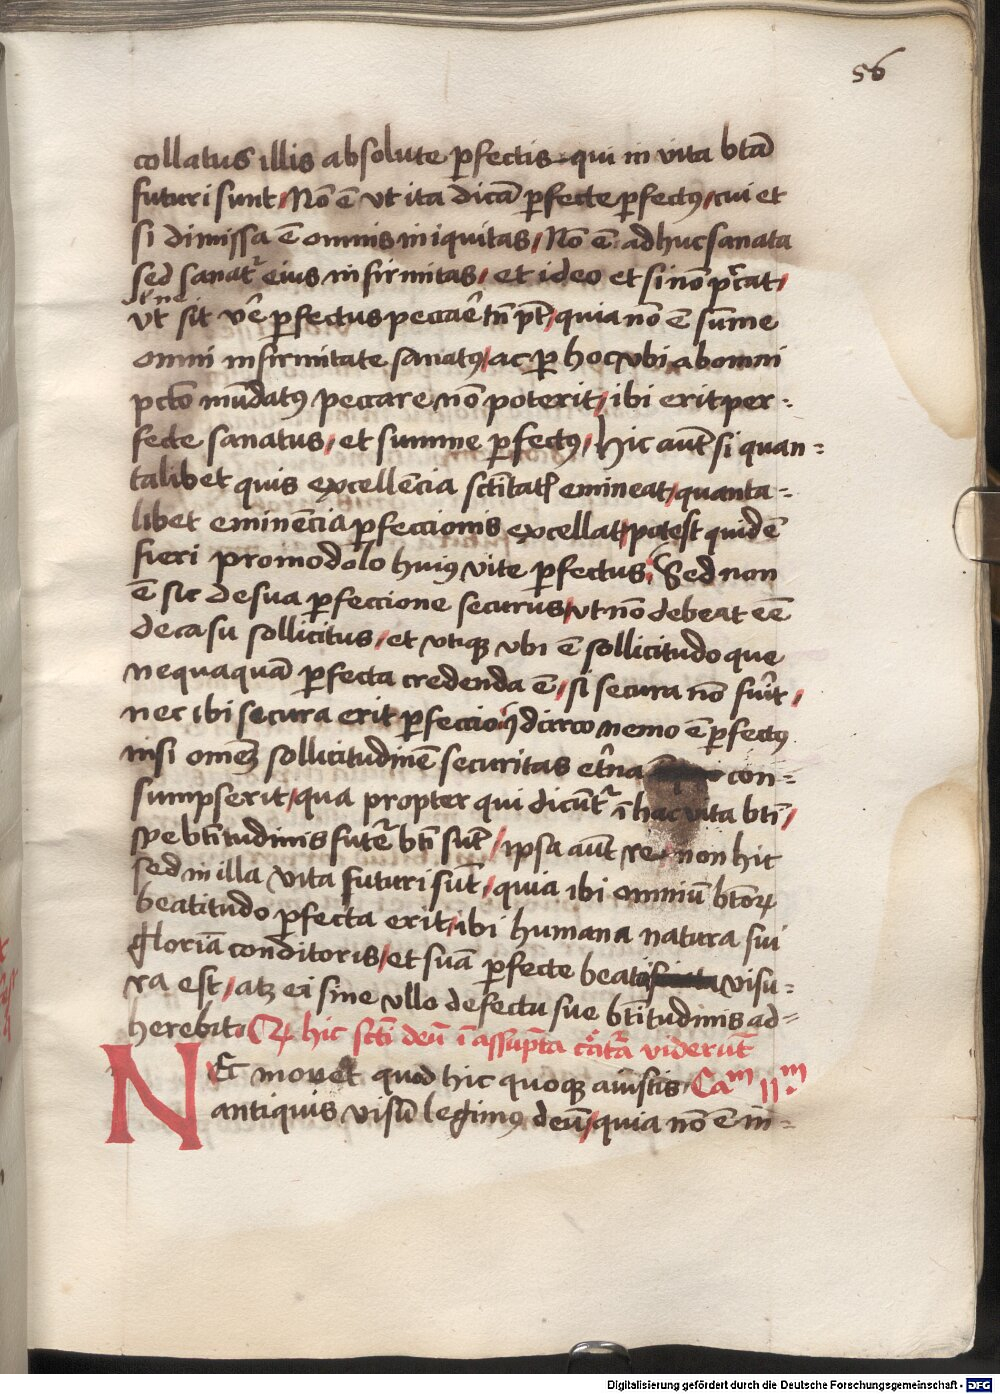 56
collatus illis absolute ꝑfectis qui in vita btā
futuri sunt / Nō ē vt ita dicā ꝑfecte ꝑfectꝰ / cui et
si dimissa ē omnis iniquitas / Nō ē adhuc sanata
sed sanat᷑ eius infirmitas / et ideo et si nō
vt sit ꝑfectus / quia nō ē sūme
omni infirmitate sanatꝰ / ac ꝑ hoc vbi ab omni
pcto mūdatꝰ peccare nō poterit / ibi erit per-
fecte sanatus / et summe ꝑfectꝰ / hic aut̄ si quan-
talibet quis excellēcia emineat / quanta-
libet eminēcia ꝑfeccionis excellat / potest quidē
fieri pro modolo huiꝰ vite ꝑfectus / Sed non
ē sic de sua ꝑfeccione securus / vt nō debeat eē
de casu sollicitus / et vtiqꝫ vbi ē sollicitudo que
nequaquā ꝑfecta credenda ē / si secura nō fu͛it /
nec ibi secura erit ꝑfeccio / idcirco nemo ē ꝑfectꝰ
nisi omēꝫ sollicitudinē securitas et͛na con-
sumpserit / qua propter qui dicūt᷑ ī hac vita bt̄i /
spe bt̄itudinis bt̄i sūt / ipsa aut̄ re non hic
sed in illa vita futuri sūt / quia ibi omniū bt̄oꝝ
beatitudo ꝑfecta erit / ibi humana natura sui
gloriā conditoris / et suā ꝑfecte visu-
ra est / atqꝫ ei sine vllo defectu sue bt̄itudinis ad-
herebit. hic sc̄ti deū ī assūpta viderūt
NEc movet quod hic quoqꝫ Caᵐ IIᵐ
antiquis visū legimꝰ deū / quia nō ē in-
Digitalisierung gefördert durch die Deutsche Forschungsgemeinschaft - DFG